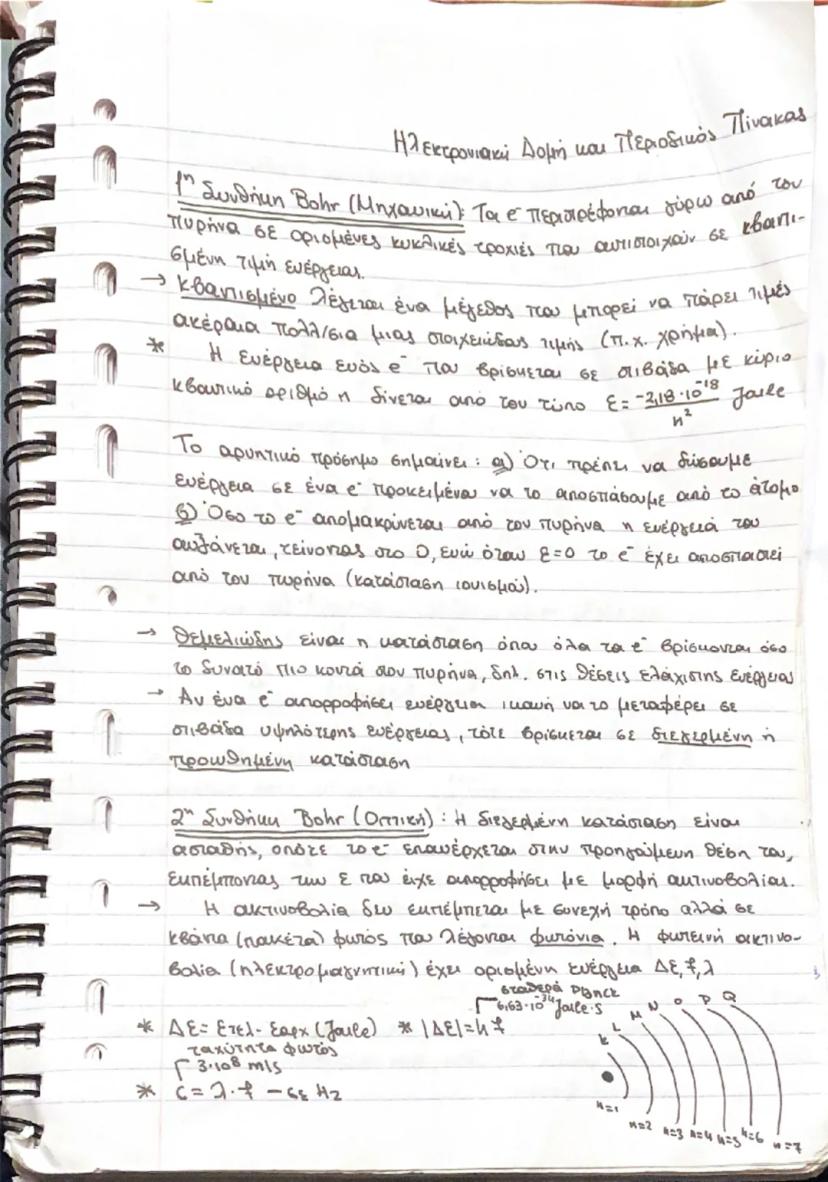 Ηλεκτρονιακή Δομή και Περιοδικός Πίνακας
1η Συνθήκη Bohr (Μηχανική): Τα e⁻ περιστρέφονται γύρω από τον
πυρήνα σε ορισμένες κυκλικές τροχιές που αντιστοιχούν σε κβαντι-
σμένη τιμή ενέργειας.
→ Κβαντισμένο λέγεται ένα μέγεθος που μπορεί να πάρει τιμές
ακέραια πολλ/σια μιας στοιχειώδους τιμής (π.χ. χρήμα).
* Η ενέργεια ενός e⁻ που βρίσκεται σε στιβάδα με κύριο
κβαντικό αριθμό n δίνεται από τον τύπο ε = -2,18·10⁻¹⁸/n² Joule
Το αρνητικό πρόσημο σημαίνει: α) Ότι πρέπει να δώσουμε
ενέργεια σε ένα e⁻ προκειμένου να το αποσπάσουμε από το άτομο
β) Όσο το e⁻ απομακρύνεται από τον πυρήνα η ενέργειά του
αυξάνεται, τείνοντας στο 0, ενώ όταν ε=0 το e⁻ έχει αποσπαστεί
από τον πυρήνα (κατάσταση ιονισμού).
→ Θεμελιώδης είναι η κατάσταση όπου όλα τα e⁻ βρίσκονται όσο
το δυνατό πιο κοντά στον πυρήνα, δηλ. στις θέσεις ελάχιστης ενέργειας
→ Αν ένα e⁻ απορροφήσει ενέργεια ικανή να το μεταφέρει σε
στιβάδα υψηλότερης ενέργειας, τότε βρίσκεται σε διεγερμένη ή
προωθημένη κατάσταση
2η Συνθήκη Bohr (Οπτική): Η διεγερμένη κατάσταση είναι
ασταθής, οπότε το e⁻ επανέρχεται στην προηγούμενη θέση του,
εκπέμποντας την ε που είχε απορροφήσει με μορφή ακτινοβολίας.
→ Η ακτινοβολία δεν εκπέμπεται με συνεχή τρόπο αλλά σε
κβάντα (πακέτα) φωτός που λέγονται φωτόνια. Η φωτεινή ακτινο-
βολία (ηλεκτρομαγνητική) έχει ορισμένη ενέργεια Δε, f, λ
σταθερά Planck
6,63·10⁻³⁴ Joule·s
* Δε = ετελ - εαρχ (Joule) * |Δε| = h f
ταχύτητα φωτός
3·10⁸ m/s
* c = λ·f – σε Hz
K L M N O P Q
n=1 n=2 n=3 n=4 n=5 n=6 n=7